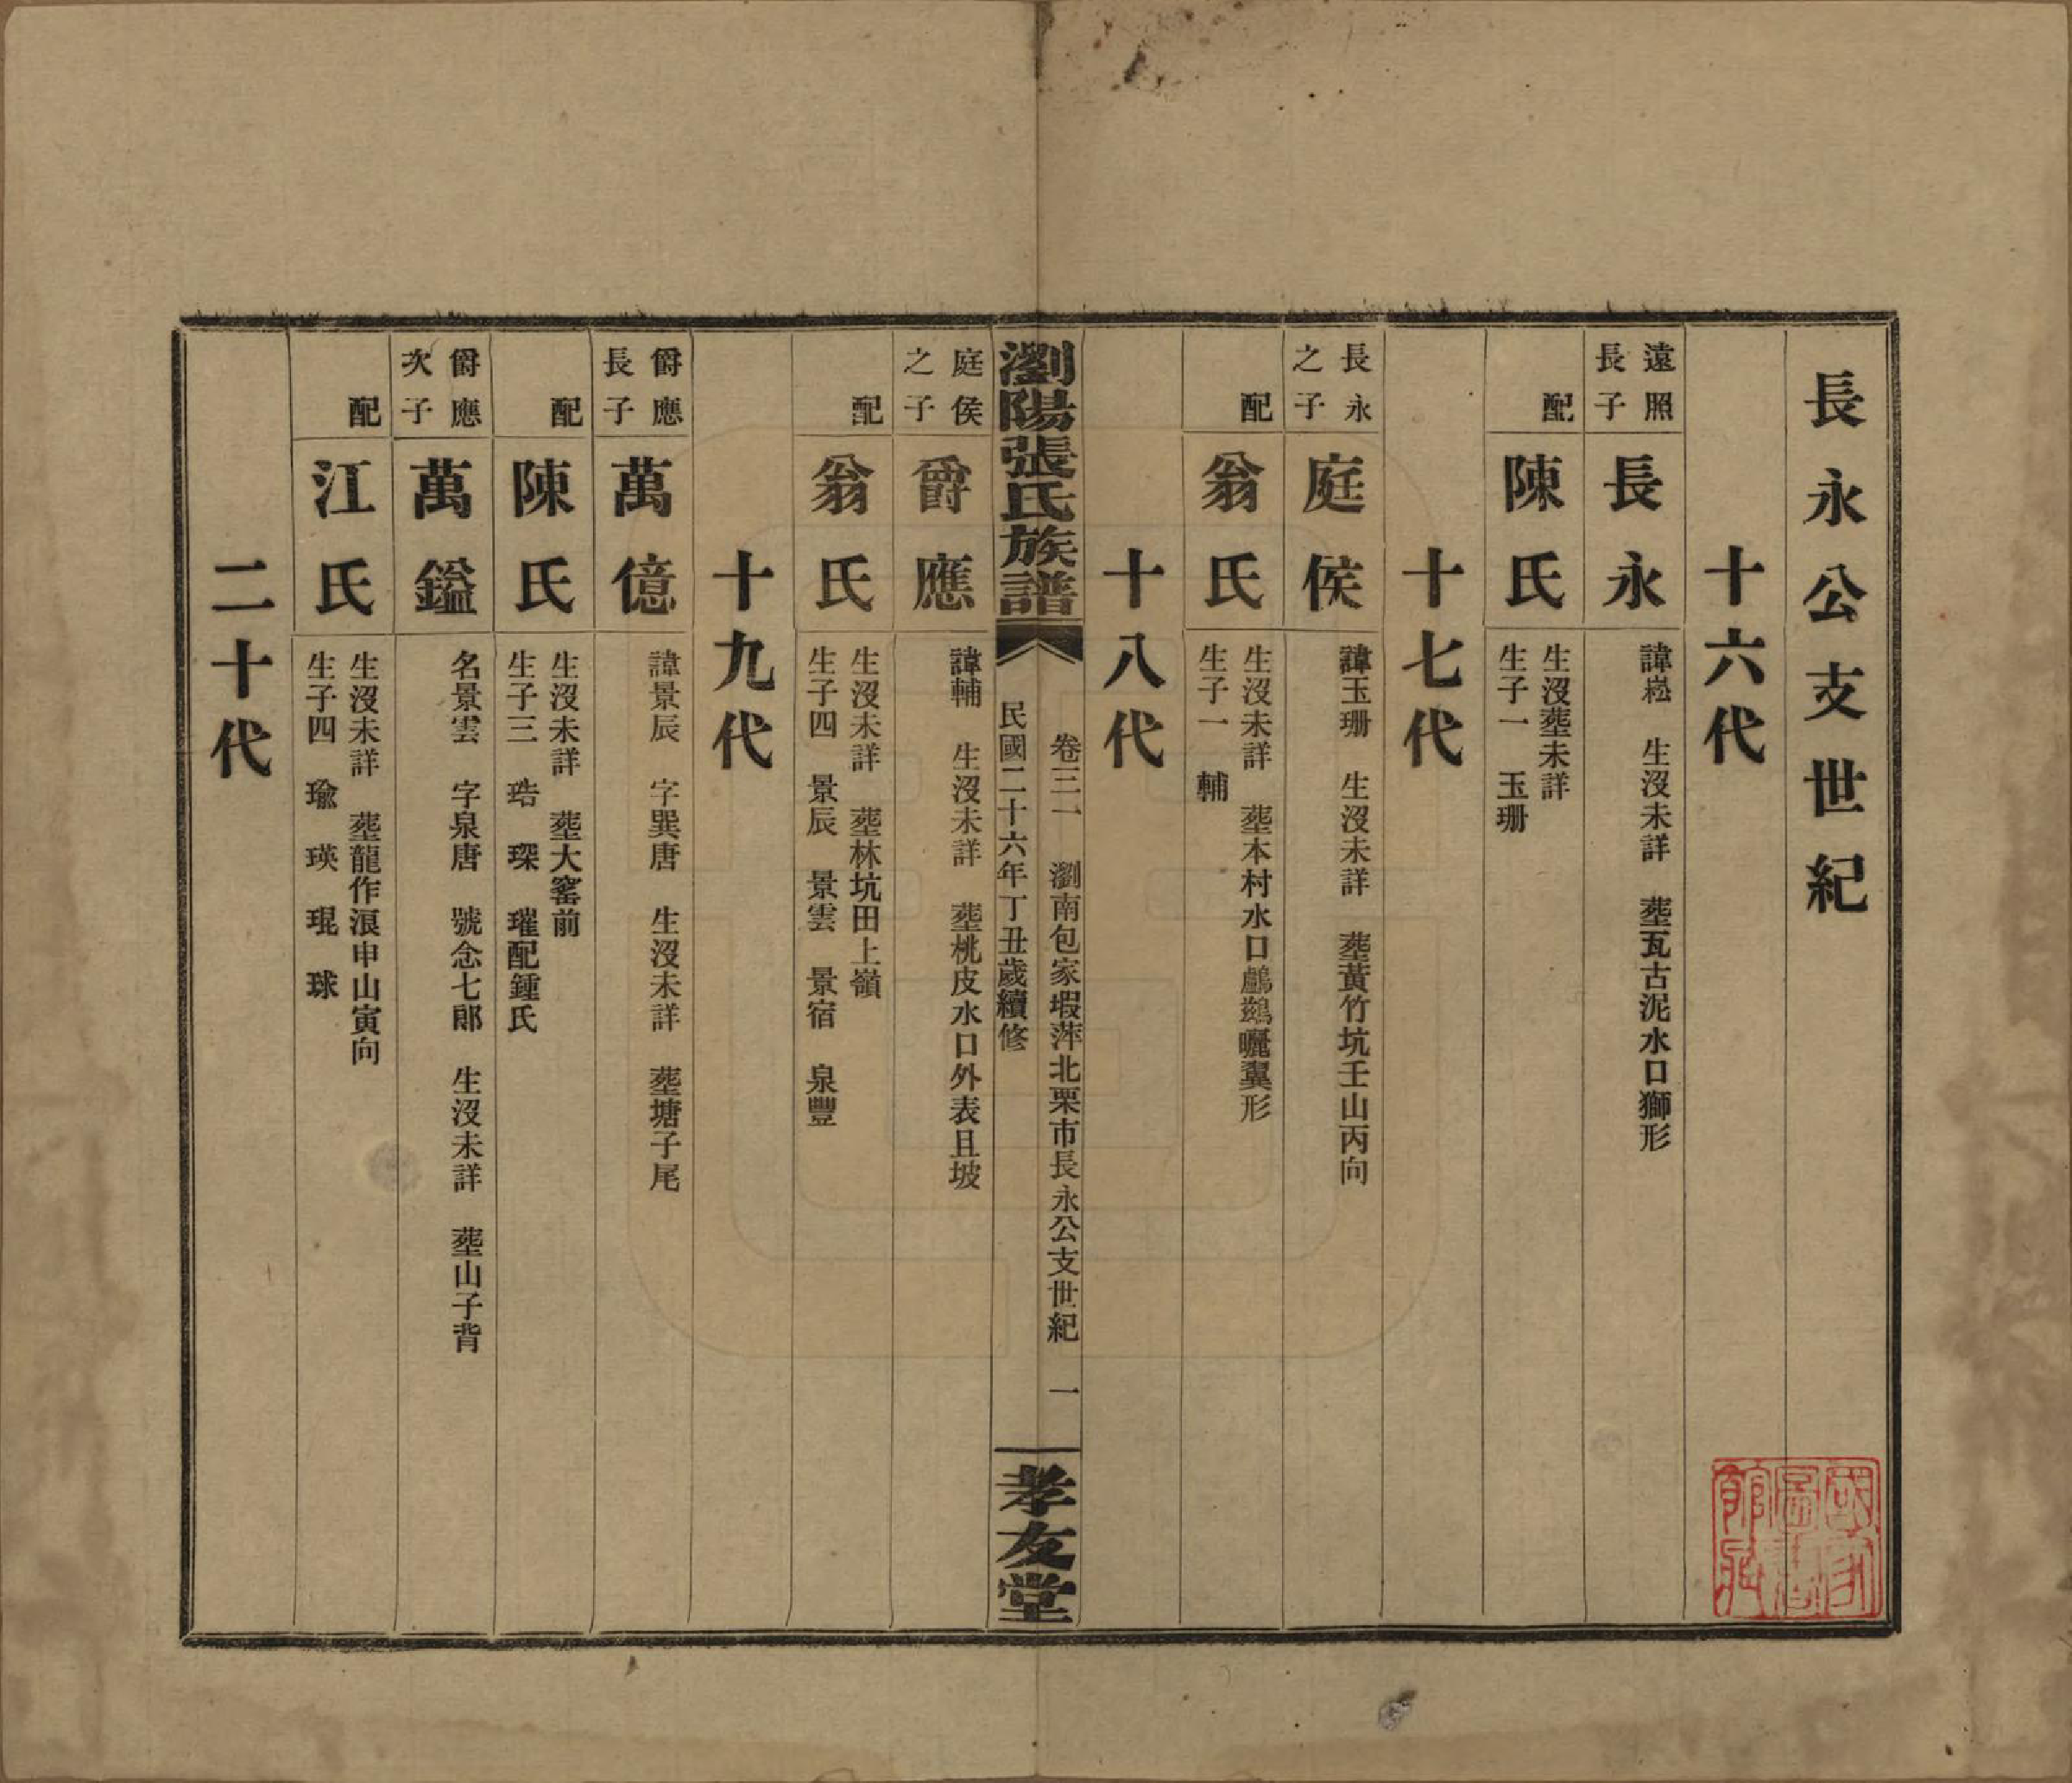 長永公支世紀
十六代
遠照長子
長永
諱崧　生沒未詳　塟瓦古泥水口獅形
配
陳氏
生沒塟未詳
生子一　玉珊
十七代
長永之子
庭侯
諱玉珊　生沒未詳　塟黃竹坑壬山丙向
配
翁氏
生沒未詳　塟本村水口鸕鷀曬翼形
生子一　輔
十八代
瀏陽張氏族譜
卷三一　瀏南包家塅萍北栗市長永公支世紀　一
民國二十六年丁丑歲續修
孝友堂
庭侯之子
爵應
諱輔　生沒未詳　塟桃皮水口外表且坡
配
翁氏
生沒未詳　塟林坑田上嶺
生子四　景辰　景雲　景宿　泉豐
十九代
爵應長子
萬億
諱景辰　字巽唐　生沒未詳　塟塘子尾
配
陳氏
生沒未詳　塟大窰前
生子三　琣　琛　璀配鍾氏
爵應次子
萬鎰
名景雲　字泉唐　號念七郎　生沒未詳　塟山子背
配
江氏
生沒未詳　塟龍作浪申山寅向
生子四　瑜　瑛　琨　球
二十代
國家圖書館藏